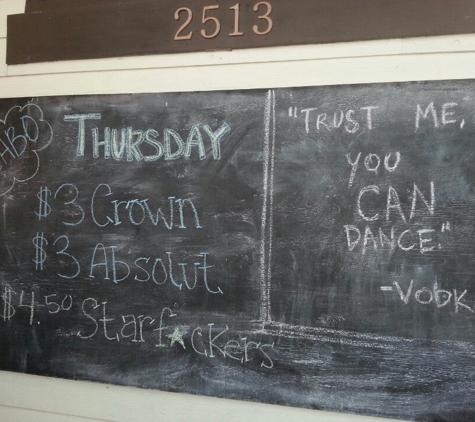 2513
THURSDAY
$3 Crown
$3 Absolut
$4.50 Starf★ckers
"TRUST ME,
YOU
CAN
DANCE."
-VODK